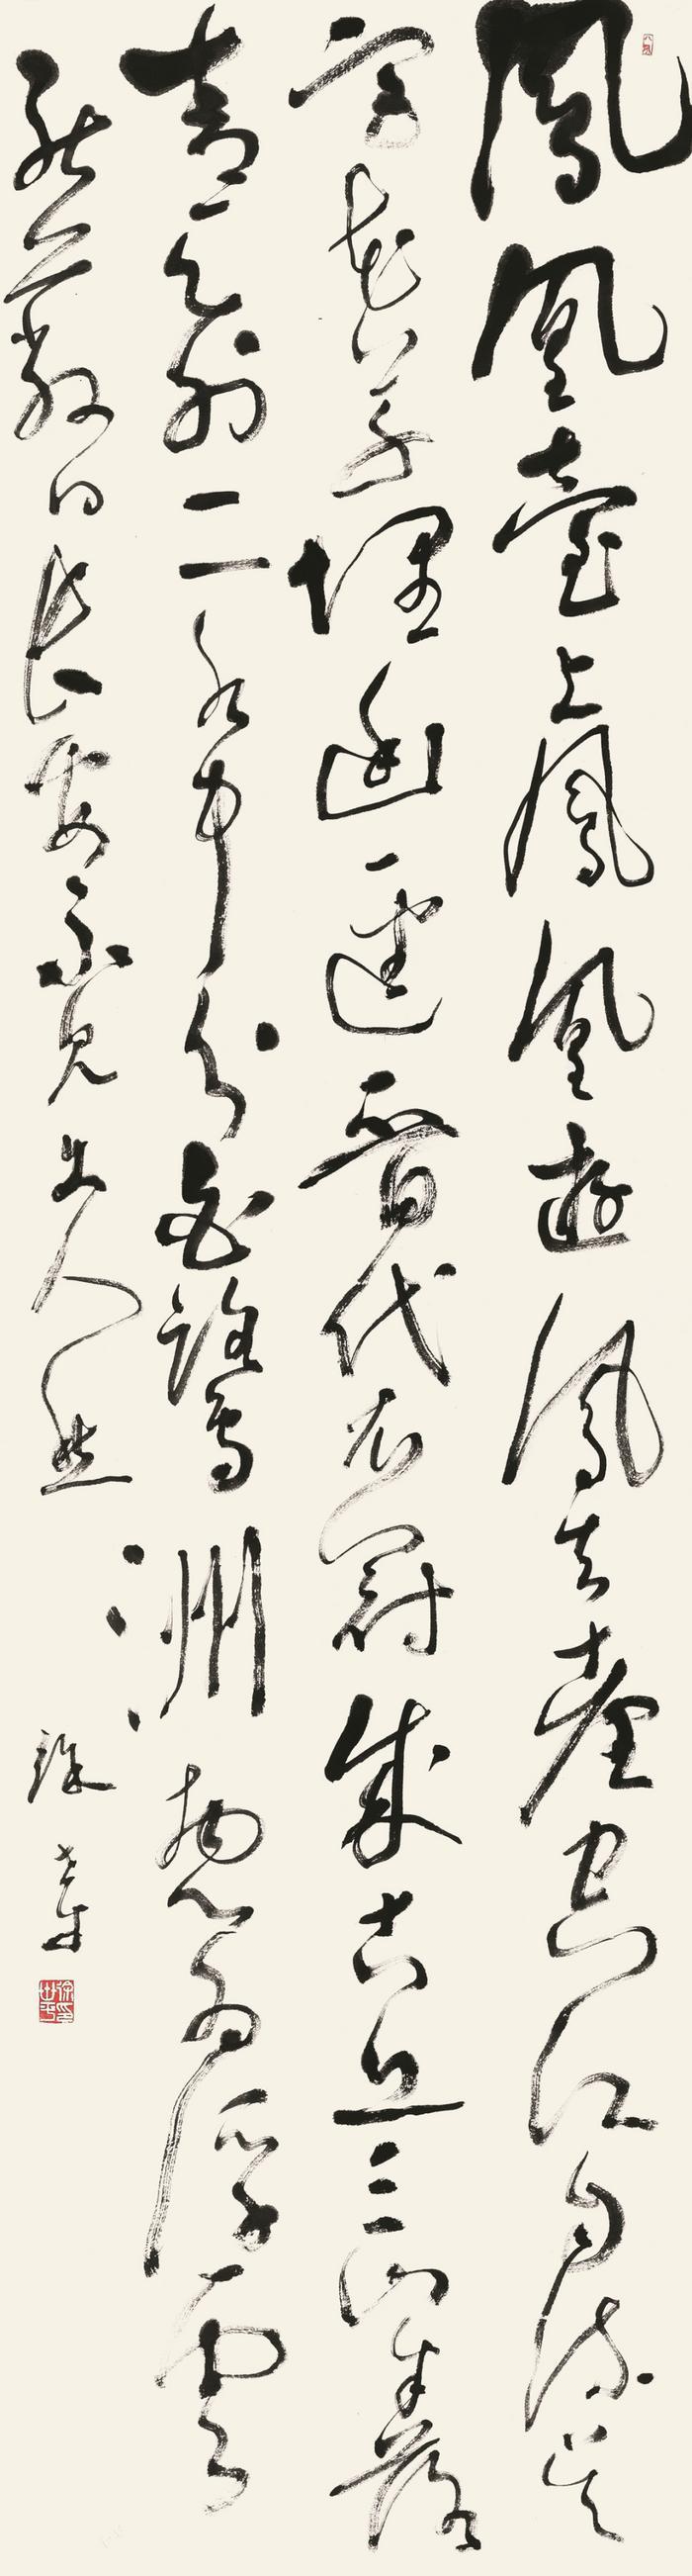 鳳凰臺上鳳凰遊鳳去臺空江自流吳
宮花草埋幽逕晉代衣冠成古丘三山半落
青天外二水中分白鷺洲總為浮雲
能蔽日長安不見使人愁
徐世平
徐世平印